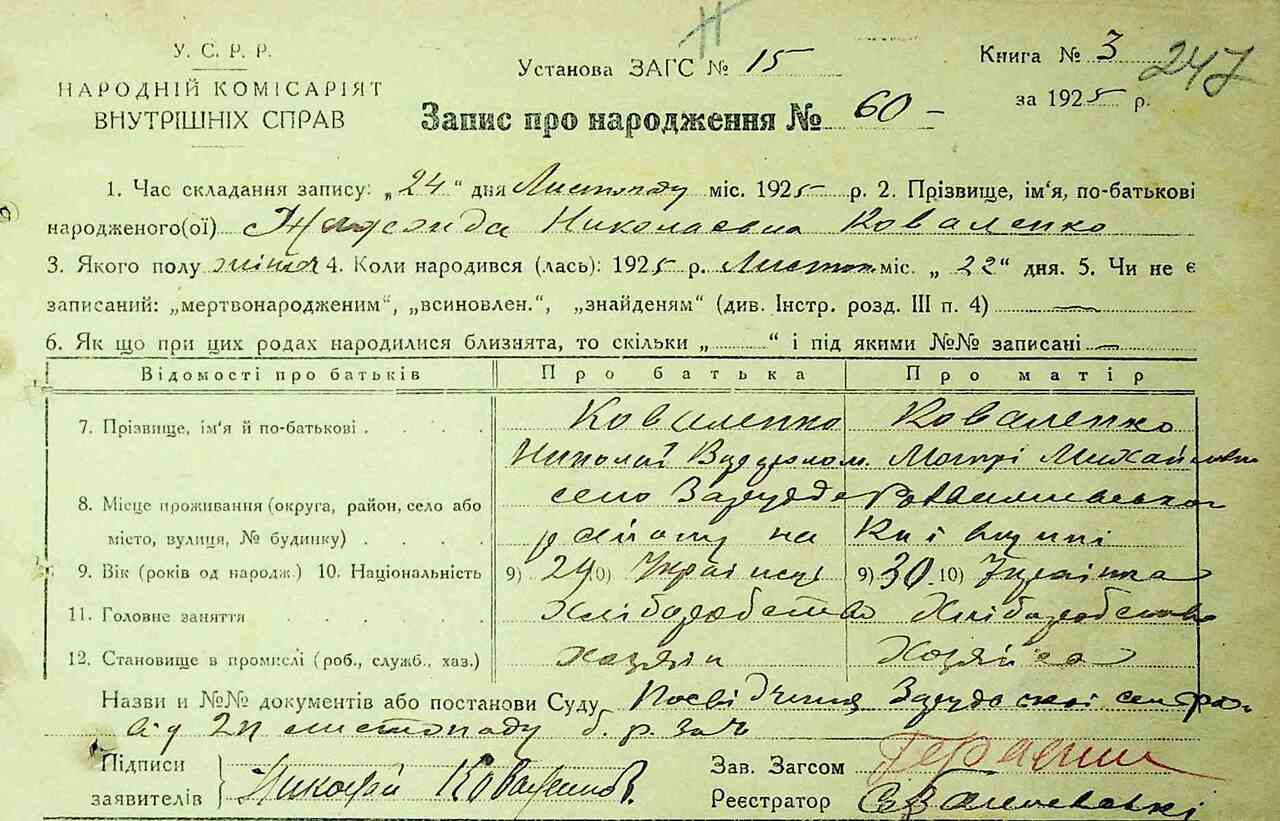 У. С. Р. Р.
НАРОДНІЙ КОМІСАРІЯТ
ВНУТРІШНІХ СПРАВ
Установа ЗАГС № 15
Книга № 3
247
за 1925 р.
Запис про народження № 60 –
1. Час складання запису: „24" дня Листопаду міс. 1925 р. 2. Прізвище, ім'я, по-батькові
народженого(ої) Николаевна Коваленко
3. Якого полу 4. Коли народився (лась): 1925 р. Листоп. міс. „22" дня. 5. Чи не є
записаний: „мертвонародженим", „всиновлен.", „знайденям" (див. Інстр. розд. III п. 4) —
6. Як що при цих родах народилися близнята, то скільки „ " і під якими №№ записані —
Відомості про батьків Про батька Про матір
7. Прізвище, ім'я й по-батькові Коваленко Коваленко
Николай Михайловна
8. Місце проживання (округа, район, село або село
місто, вулиця, № будинку) району на Київщині
9. Вік (років од народж.) 10. Національність 9) 29 10) Українець 9) 30 10) Українка
11. Головне заняття Хліборобство Хліборобство
12. Становище в промислі (роб., служб., хаз.) хазяїн Хозяйка
Назви и №№ документів або постанови Суду Посвідчення
від листопаду б. р. за ч
Підписи
заявителів Николай Коваленко
Зав. Загсом
Реєстратор